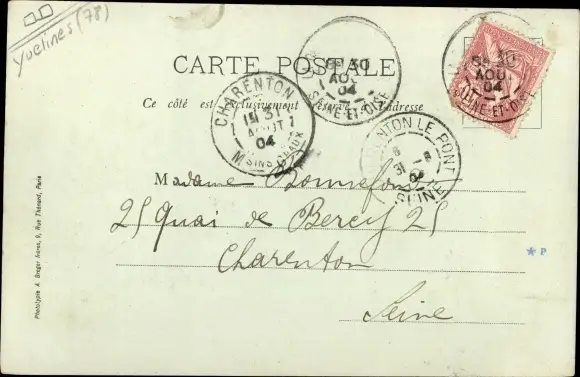 Yvelines (78)
CARTE POSTALE
Ce côté est exclusivement réservé à l'adresse
30
AOU
04
SEINE-ET-OISE
30
AOU
04
SEINE-ET-OISE
CHARENTON
31
AOUT
04
MSINS CHAUX
CHARENTON LE PONT
31
04
SEINE
Madame Bonnefon
25 Quai de Bercy 25
Charenton
Seine
★ P
Phototypie A. Breger frères, 9, Rue Thénard, Paris